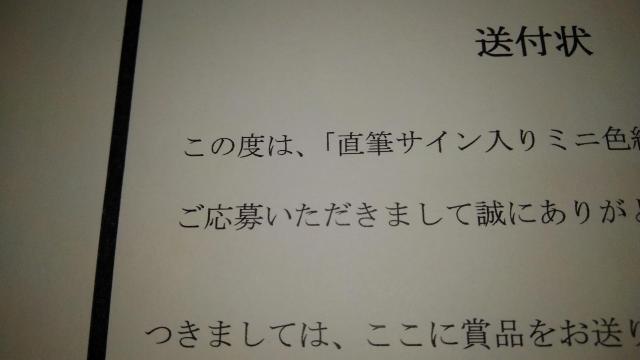 送付状
この度は、「直筆サイン入りミニ色紙
ご応募いただきまして誠にありがと
つきましては、ここに賞品をお送り